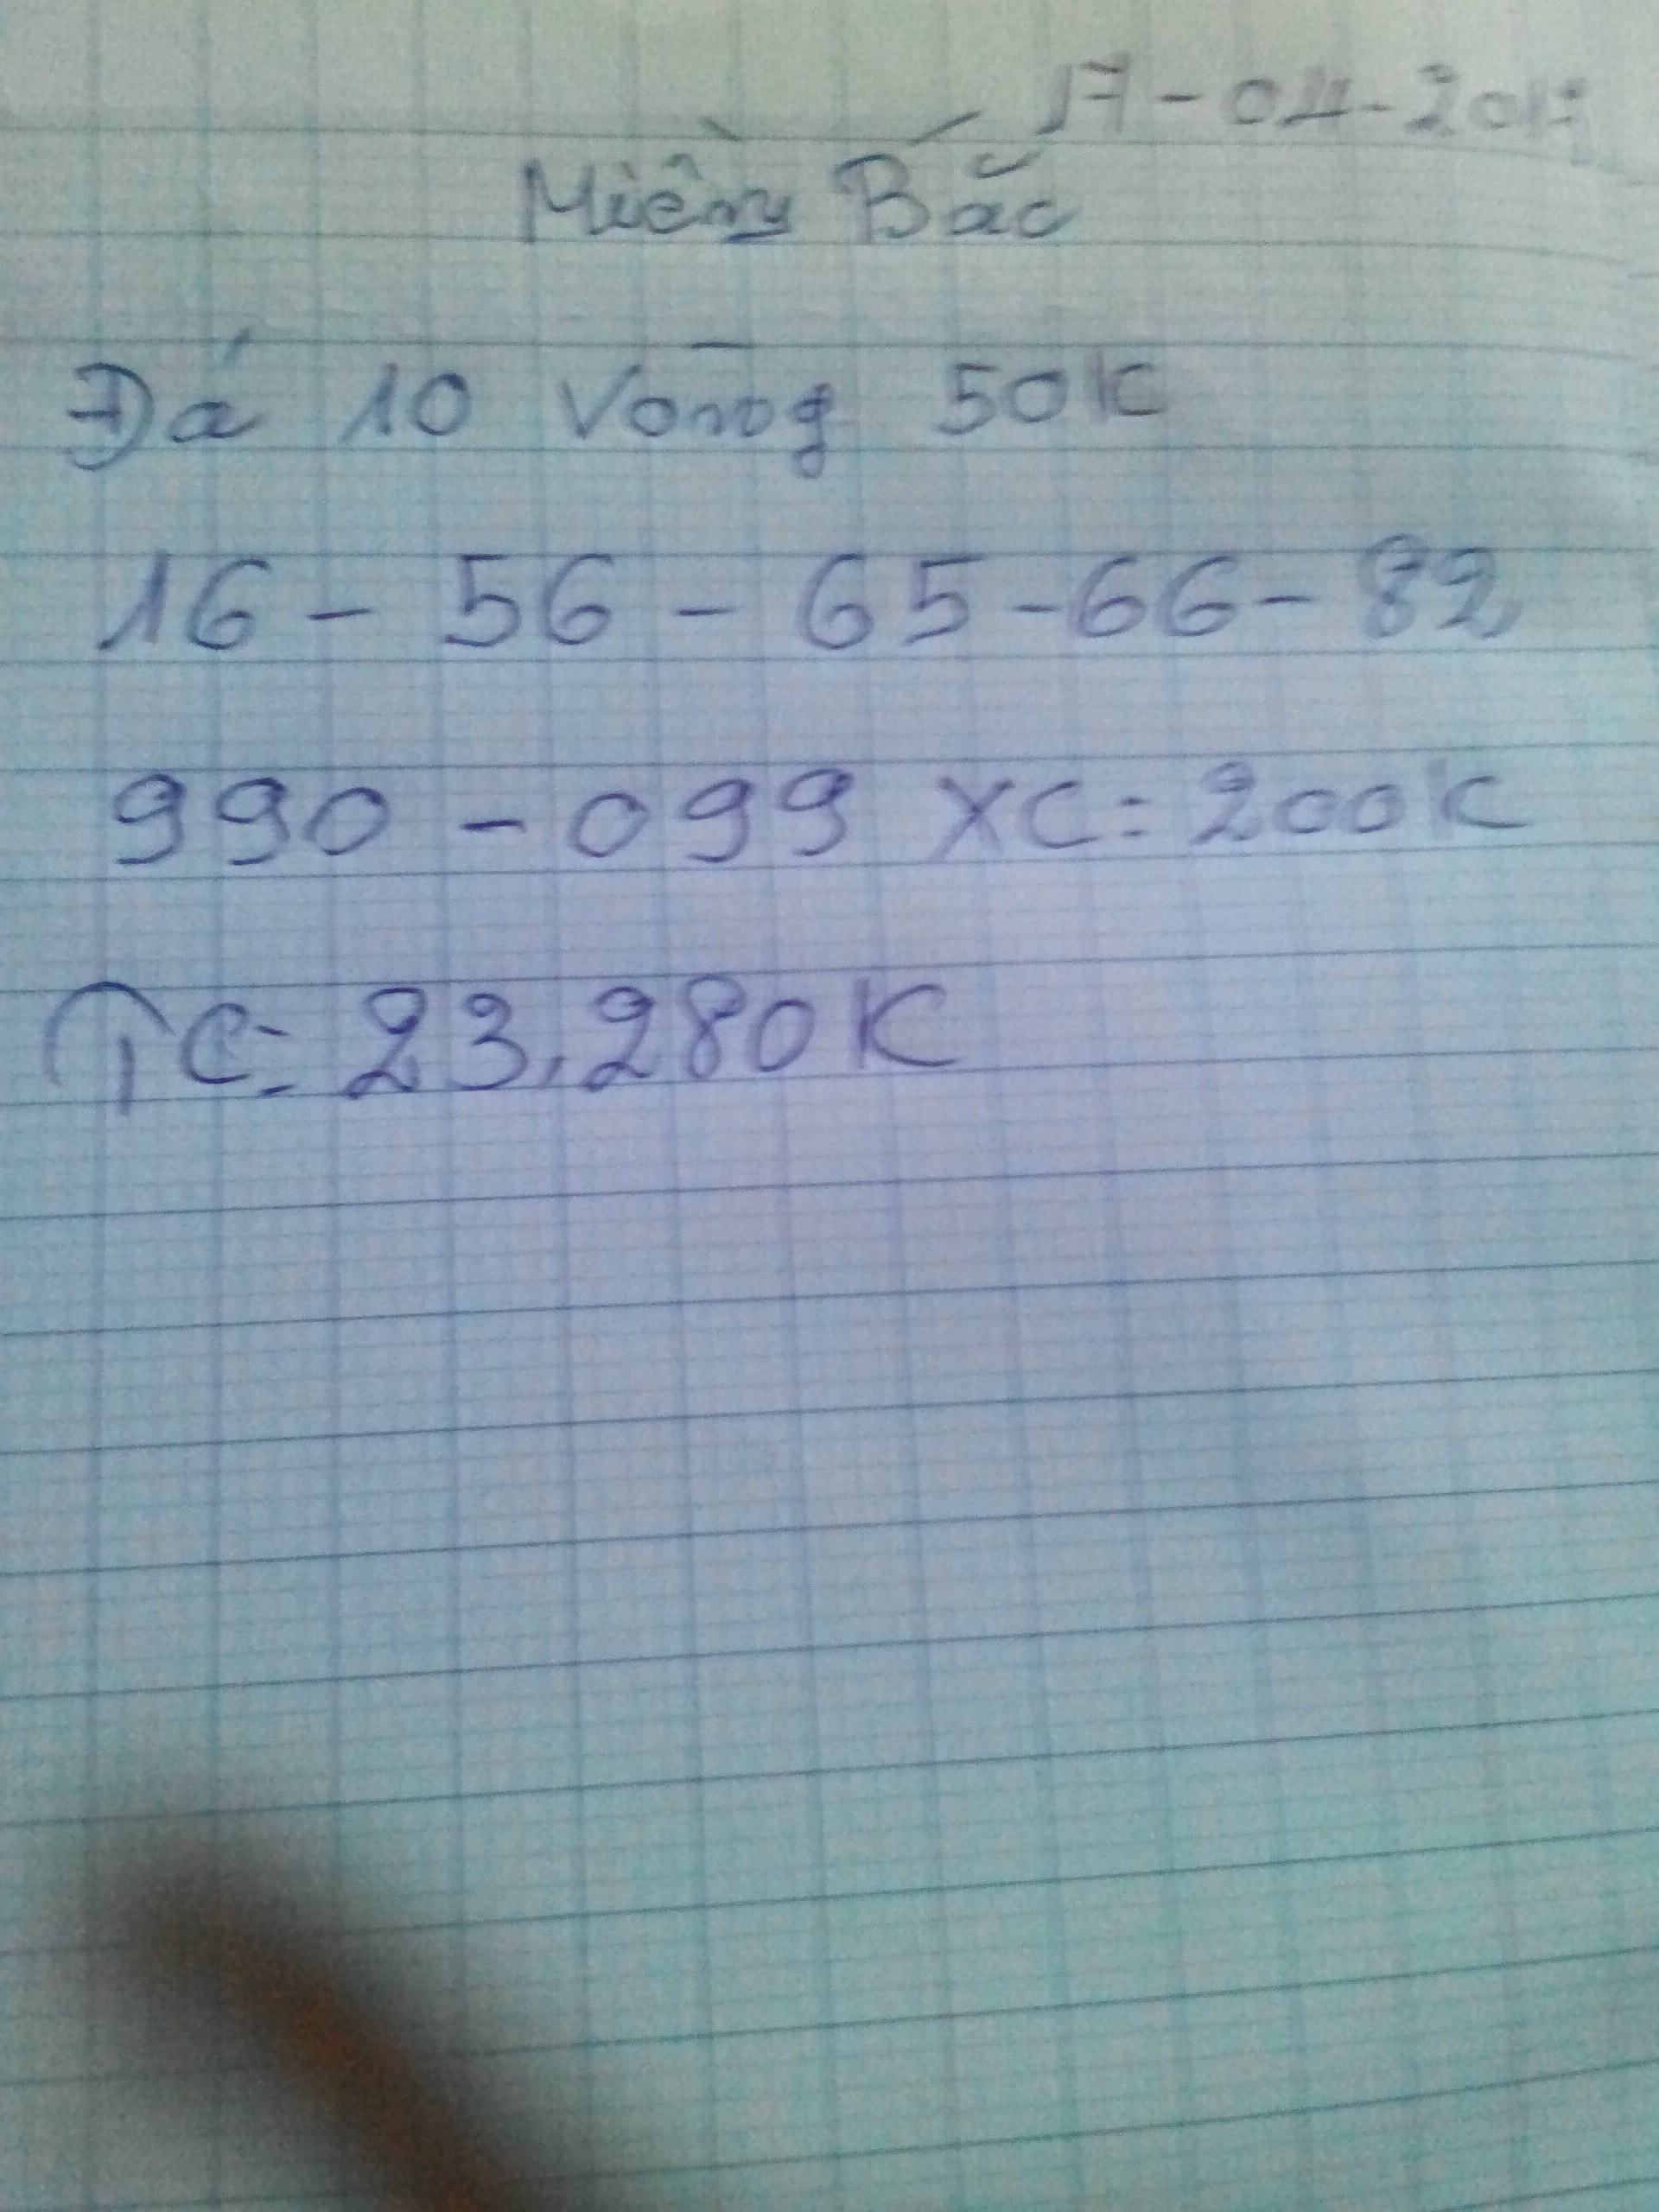 17-04-2017
Miền Bắc
Đá 10 Vòng 50K
16 - 56 - 65 - 66 - 82
990 - 099 XC = 200K
TC = 23,280K